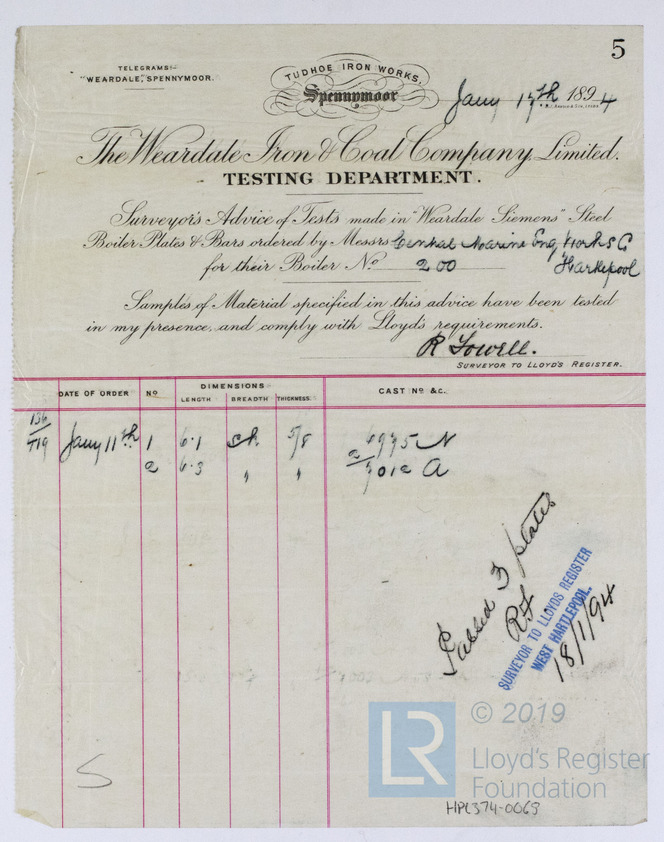 5
TELEGRAMS:-
"WEARDALE," SPENNYMOOR.
TUDHOE IRON WORKS,
Spennymoor
Jany 17th 1894
The Weardale Iron & Coal Company, Limited.
TESTING DEPARTMENT.
Surveyor's Advice of Tests made in "Weardale Siemens" Steel
Boiler Plates & Bars ordered by Messrs Central Marine Eng Works Co
for their Boiler No 200 Hartlepool
Samples of Material specified in this advice have been tested
in my presence, and comply with Lloyd's requirements.
R Fowell.
SURVEYOR TO LLOYD'S REGISTER.
DATE OF ORDER No DIMENSIONS CAST No &c.
LENGTH BREADTH THICKNESS
136
719 Jany 11th 1 6.1 5/8 6995 N
2 6.3 " " A
Passed 3 plates
R.F.
SURVEYOR TO LLOYDS REGISTER
WEST HARTLEPOOL.
18/1/94
5
LR © 2019
Lloyd's Register
Foundation
HPL374-0069